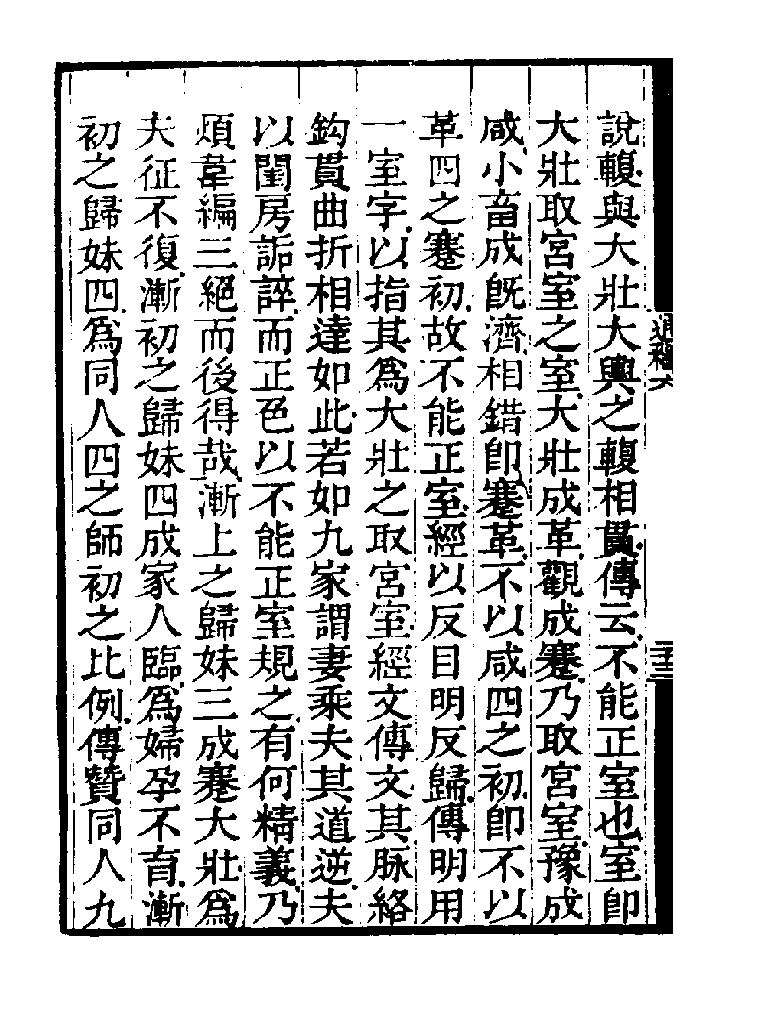 說輹與大壯大輿之輹相貫傳云不能正室也室卽
大壯取宮室之室大壯成革觀成蹇乃取宮室豫成
咸小畜成旣濟相錯卽蹇革不以咸四之初卽不以
革四之蹇初故不能正室經以反目明反歸傳明用
一室字以指其爲大壯之取宮室經文傳文其脈絡
鈎貫曲折相達如此若如九家謂妻乘夫其道逆夫
以閨房詬誶而正色以不能正室規之有何精義乃
煩韋編三絕而後得哉漸上之歸妹三成蹇大壯爲
夫征不復漸初之歸妹四成家人臨爲婦孕不育漸
初之歸妹四爲同人四之師初之比例傳贊同人九